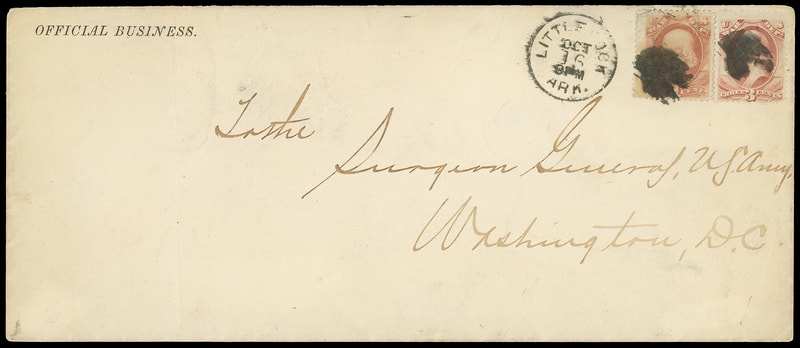 OFFICIAL BUSINESS.
LITTLE ROCK
OCT
16
8PM
ARK.
3
To the
Surgeon General, U.S. Army,
Washington, D.C.